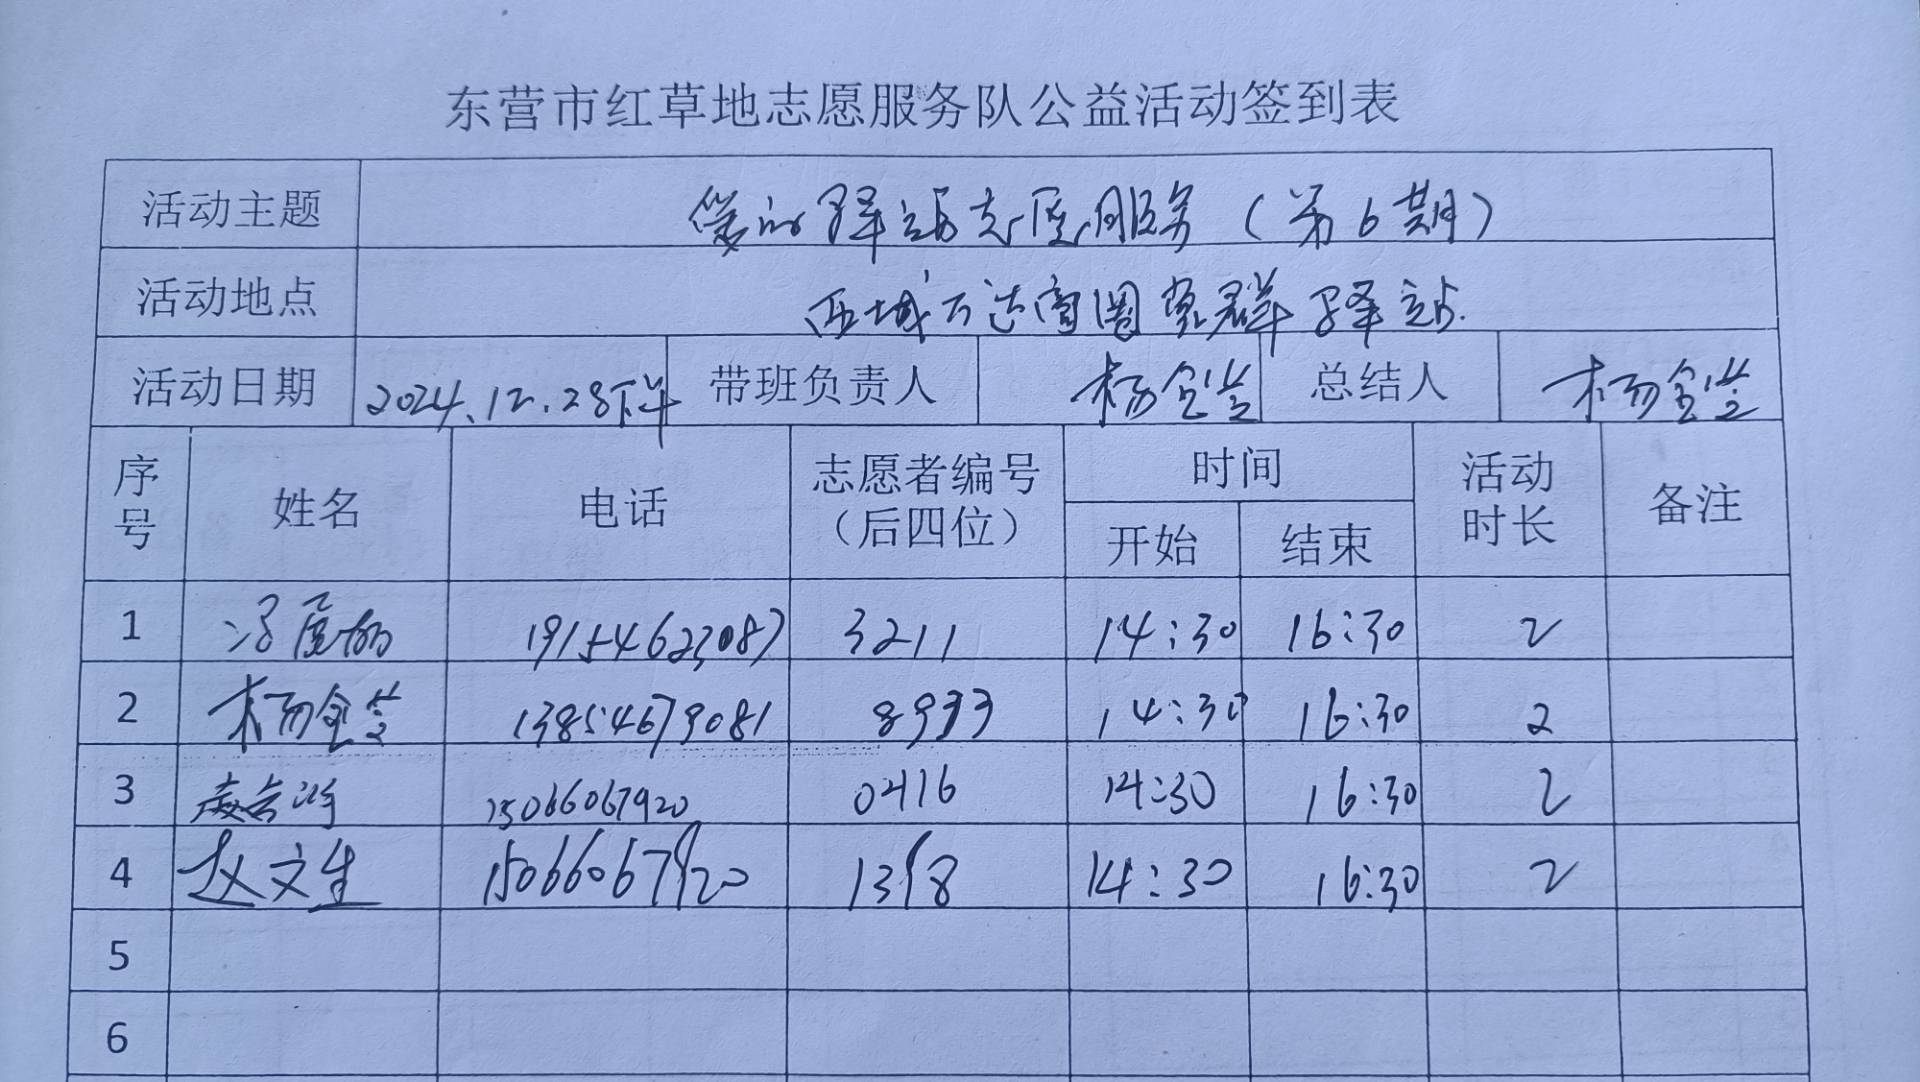 东营市红草地志愿服务队公益活动签到表
活动主题 驿站志愿服务（第6期）
活动地点 西城万达商圈党群驿站
活动日期 2024.12.28下午 带班负责人 杨金兰 总结人 杨金兰
序号 姓名 电话 志愿者编号（后四位） 时间 开始 结束 活动时长 备注
1 19154623087 3211 14:30 16:30 2
2 杨金兰 13854679081 8993 14:30 16:30 2
3 15066067920 0416 14:30 16:30 2
4 赵文生 15066067920 1398 14:30 16:30 2
5
6